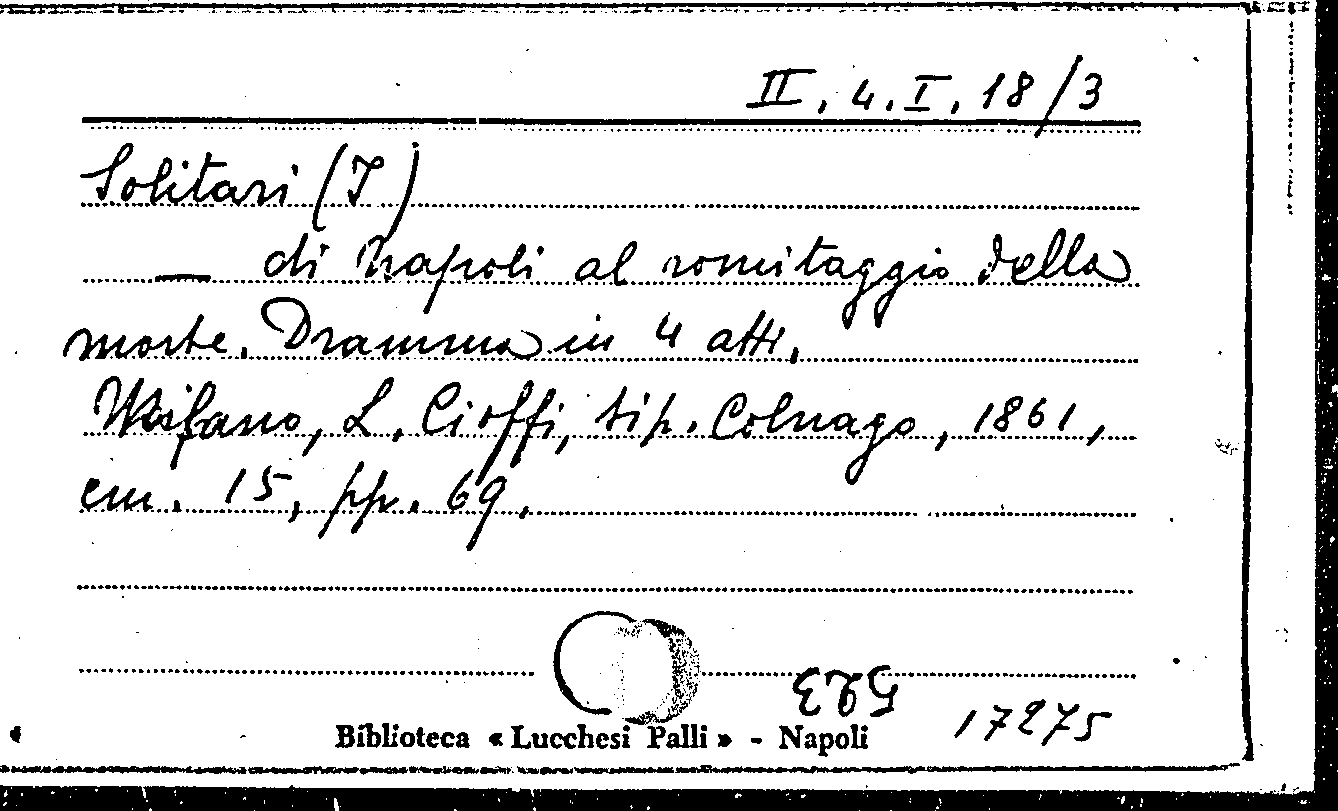 II. 4. I. 18/3
Solitari (I)
— di Napoli al romitaggio della
morte. Dramma in 4 atti.
L. Cioffi, tip. Colnago, 1861,
cm. 15, pp. 69.
Biblioteca « Lucchesi Palli » - Napoli
17275